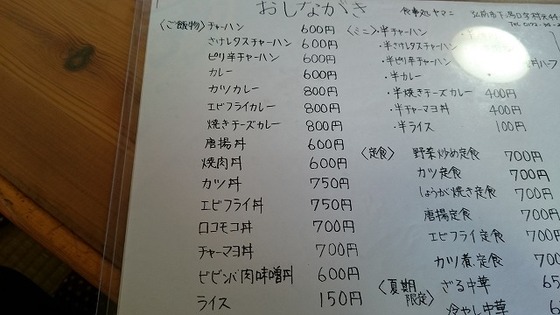 おしながき
食事処 ヤマニ
〈ご飯物〉チャーハン 600円
さけレタスチャーハン 600円
ピリ辛チャーハン 600円
カレー 600円
カツカレー 800円
エビフライカレー 800円
焼きチーズカレー 800円
唐揚丼 600円
焼肉丼 600円
カツ丼 750円
エビフライ丼 750円
ロコモコ丼 700円
チャーマヨ丼 700円
ビビンバ肉味噌丼 600円
ライス 150円
〈ミニ〉・半チャーハン
・半さけレタスチャーハン
・半ピリ辛チャーハン
・半カレー
・半焼きチーズカレー 400円
・半チャーマヨ丼 400円
・半ライス 100円
〈定食〉 野菜炒め定食 700円
カツ定食 700円
しょうが焼き定食 700円
唐揚定食 700円
エビフライ定食 700円
カツ煮定食 700円
〈夏期限定〉 ざる中華
冷やし中華